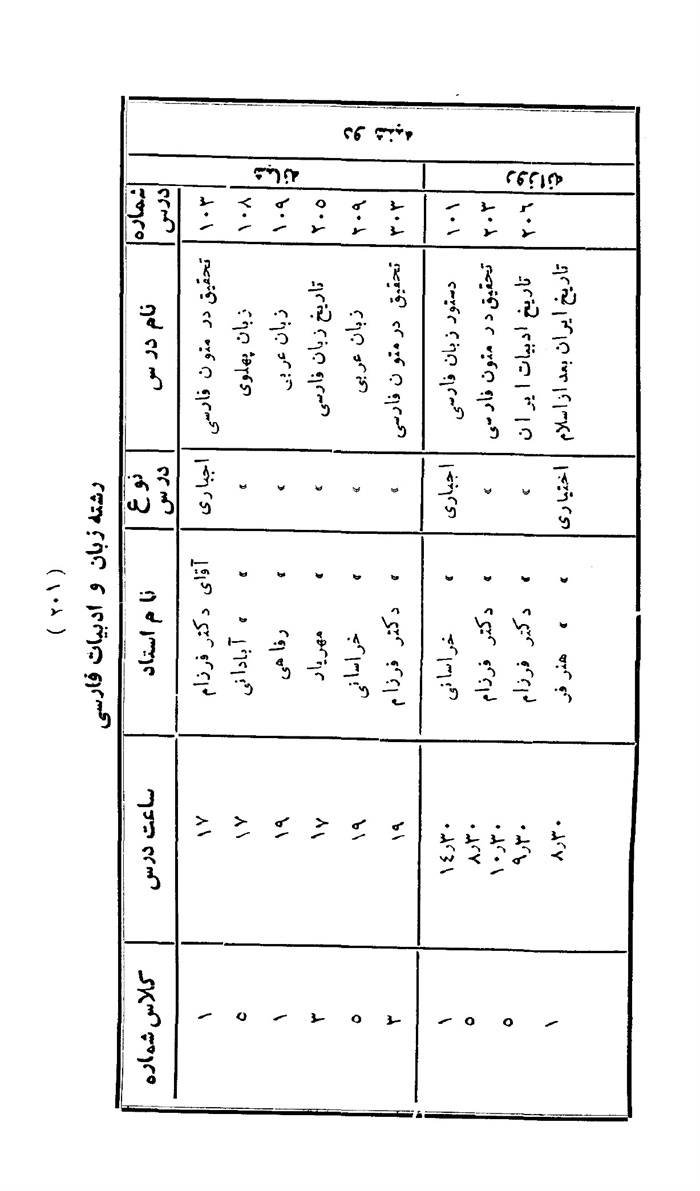 ( ۲۰۱ )
رشته زبان و ادبیات فارسی
دو شنبه
شماره درس نام درس نوع درس نام استاد ساعت درس کلاس شماره
شبانه
۱۰۳ تحقیق در متون فارسی اجباری آقای دکتر فرزام ۱۷ ۱
۱۰۸ زبان پهلوی » » » آبادانی ۱۷ ۵
۱۰۹ زبان عربی » » رفاهی ۱۹ ۱
۲۰۵ تاریخ زبان فارسی » » مهریار ۱۷ ۳
۲۰۹ زبان عربی » » خراسانی ۱۹ ۵
۳۰۳ تحقیق در متون فارسی » » دکتر فرزام ۱۹ ۳
روزانه
۱۰۱ دستور زبان فارسی اجباری » خراسانی ۱۴٫۳۰ ۱
۲۰۳ تحقیق در متون فارسی » » دکتر فرزام ۸٫۳۰ ۵
۱۰٫۳۰
۲۰۶ تاریخ ادبیات ایران » » دکتر فرزام ۹٫۳۰ ۵
تاریخ ایران بعد از اسلام اختیاری » » هنرفر ۸٫۳۰ ۱